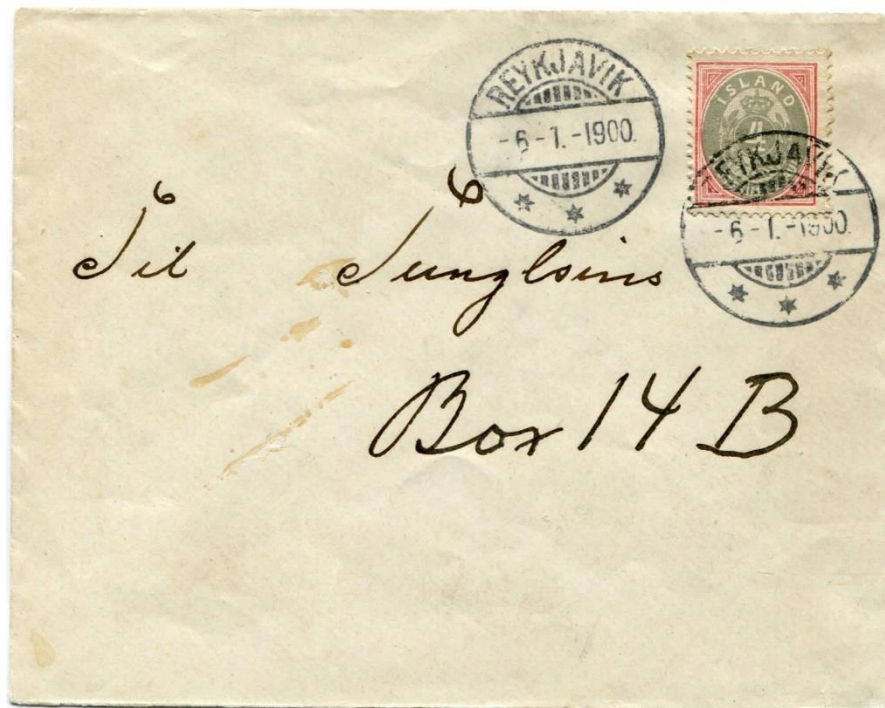 REYKJAVIK
-6-1.-1900.
ÍSLAND
4
REYKJAVIK
-6-1.-1900.
Til Tunglsins
Box 14 B